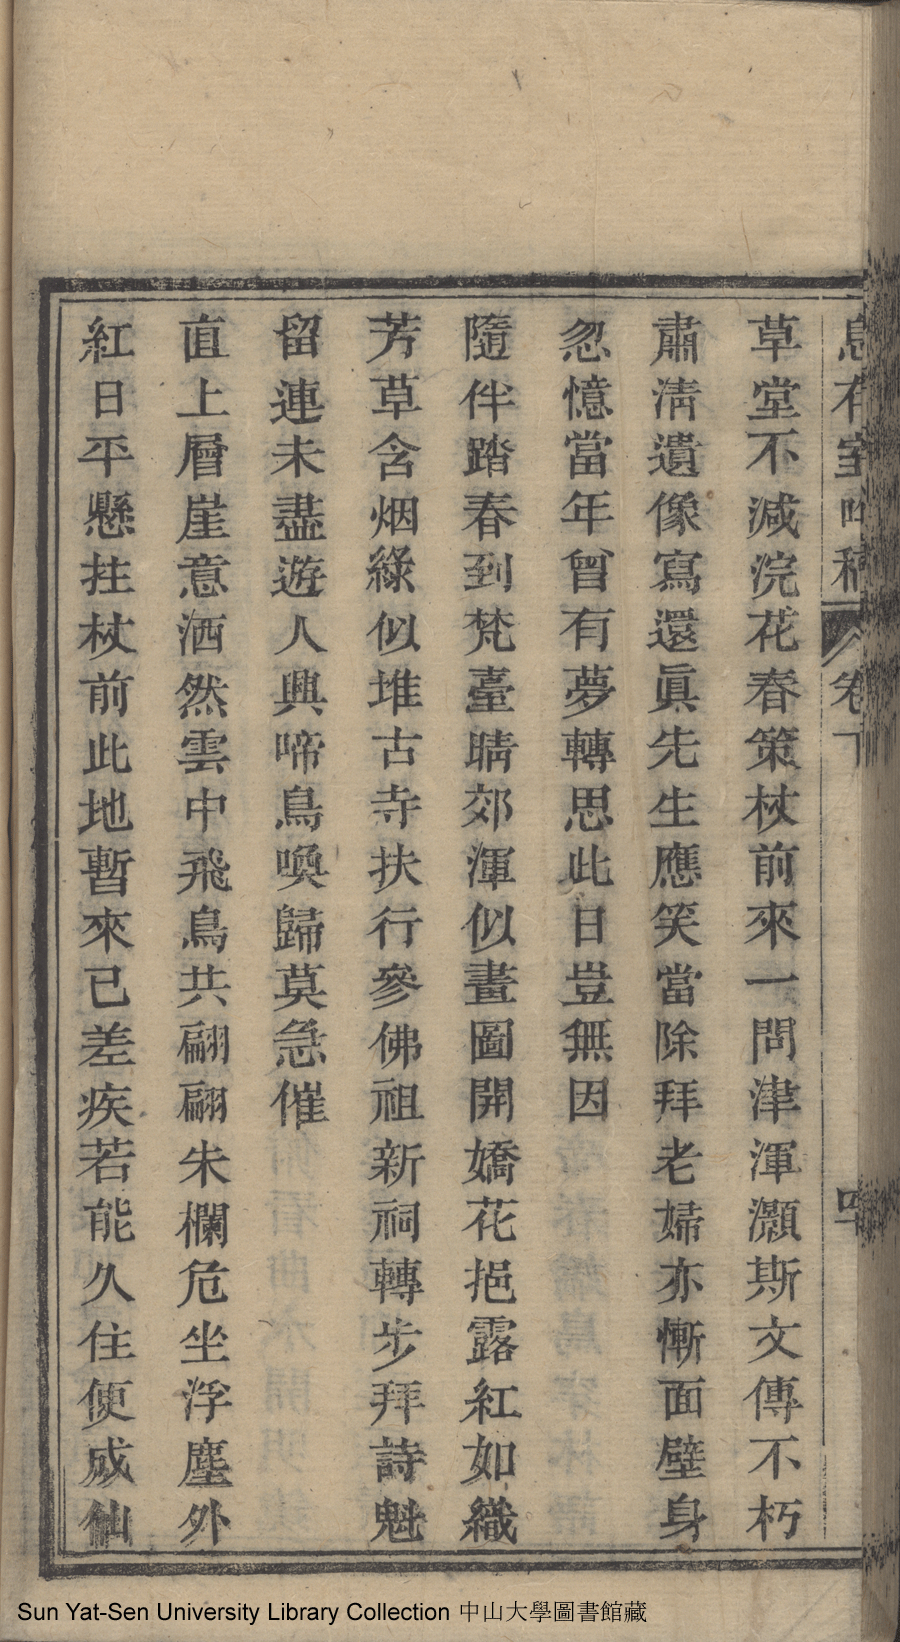 草堂不減浣花春策杖前來一問津渾灝斯文傳不朽
肅清遺像寫還眞先生應笑當除拜老婦亦慚面壁身
忽憶當年曾有夢轉思此日豈無因
隨伴踏春到梵臺晴郊渾似畫圖開嬌花挹露紅如織
芳草含烟綠似堆古寺扶行參佛祖新祠轉步拜詩魁
留連未盡遊人興啼鳥喚歸莫急催
直上層崖意洒然雲中飛鳥共翩翩朱欄危坐浮塵外
紅日平懸拄杖前此地暫來已差疾若能久住便成仙
Sun Yat-Sen University Library Collection 中山大學圖書館藏